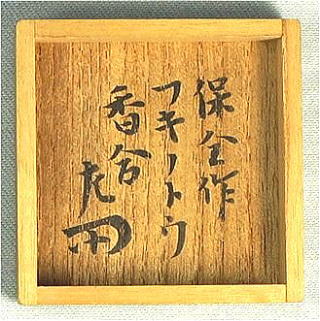 保全作
フキノトウ
香合